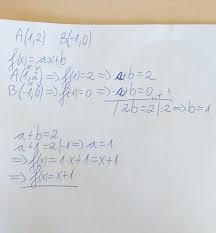 A(1,2) B(-1,0)
f(x)=ax+b
A(1,2) => f(1)=2 => a+b=2
B(-1,0) => f(-1)=0 => -a+b=0 +
/ 2b=2 |:2 => b=1
a+b=2
a+1=2 |-1 => a=1
=> f(x)=1·x+1=x+1
=> f(x)=x+1